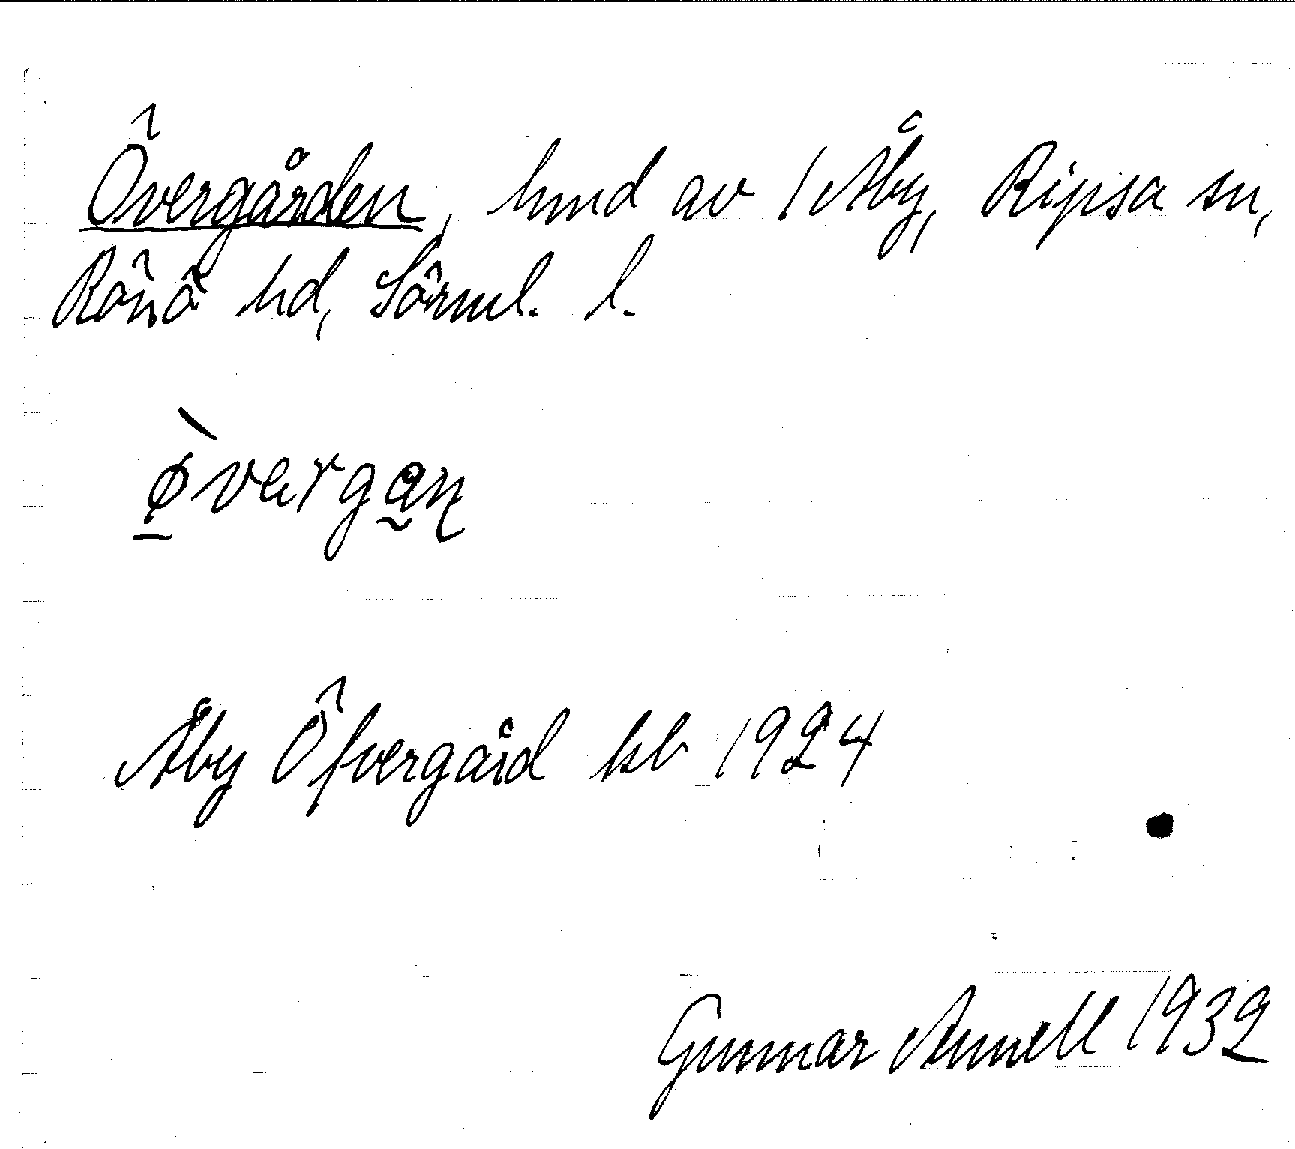 Övergården, hmd av 1 Åby, Ripsa sn,
Rönö hd, Sörml. l.
ø̠̀vərga̰ɳ
Åby Öfvergård kb 1924
Gunnar Annell 1932